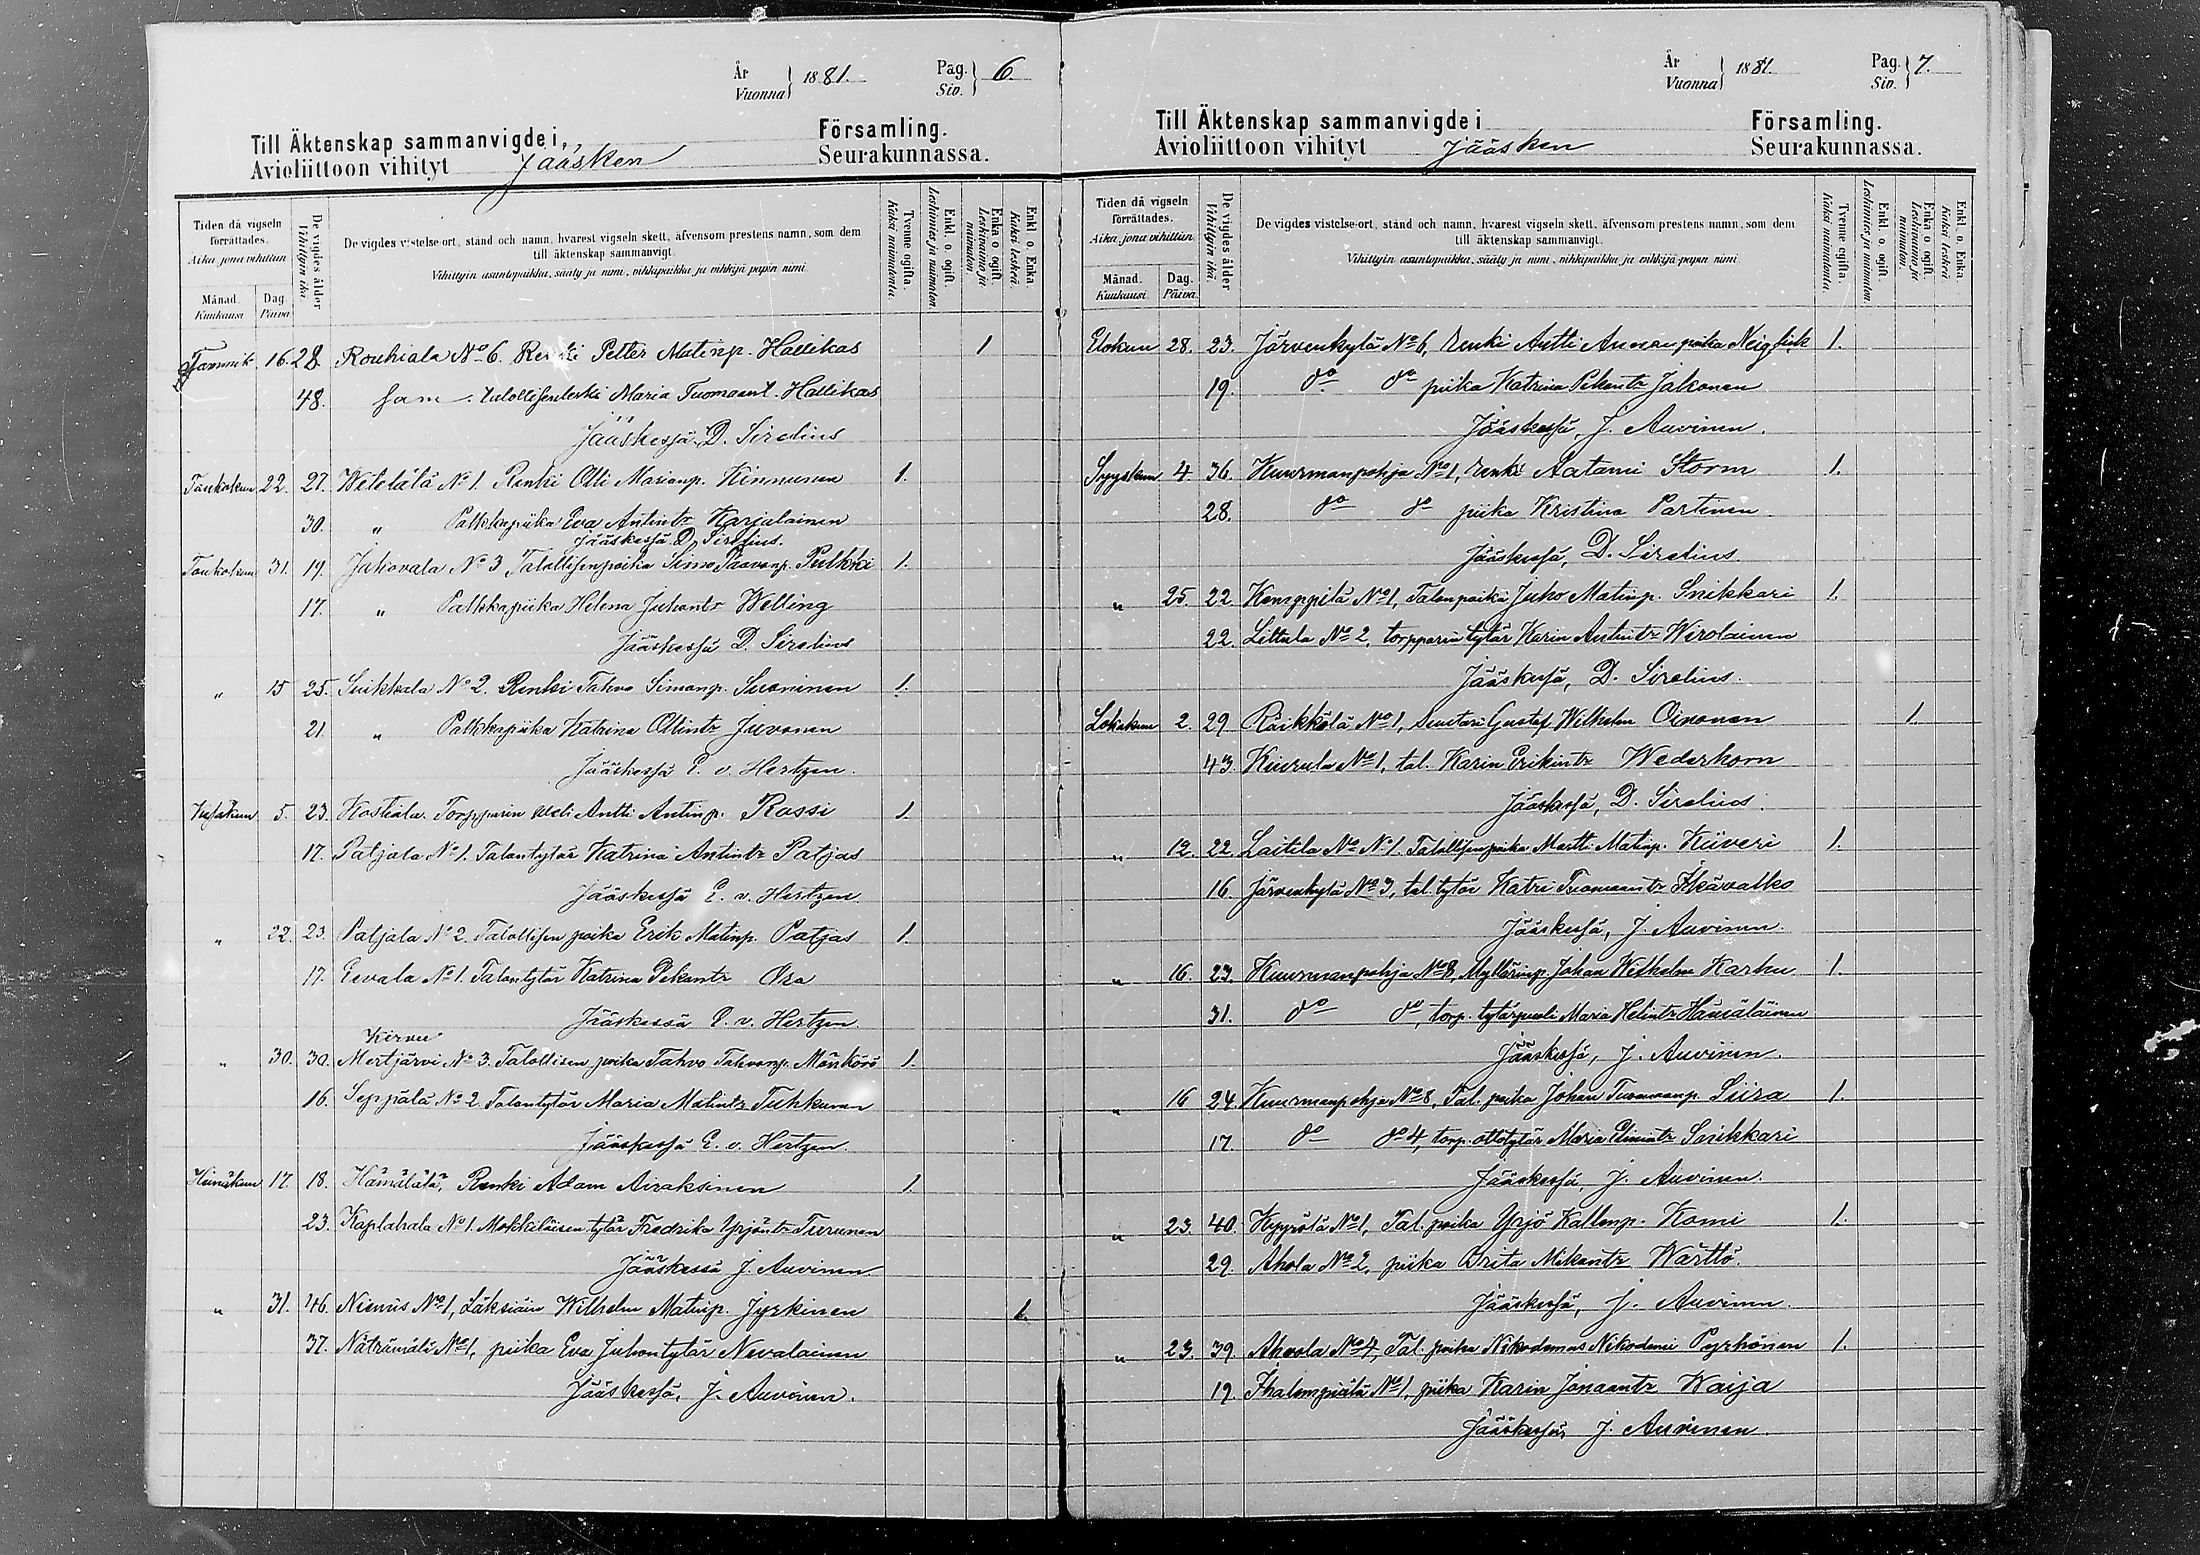 År
Vuonna 1881.
Pag.
Siv. 6.
Till Äktenskap sammanvigde i Församling.
Avioliittoon vihityt Jääsken Seurakunnassa.
Tiden då vigseln förrättades.
Aika, jona vihittiin
Månad. Kuukausi
Dag. Päivä
De vigdes ålder
Vihittyin ikä.
De vigdes vistelse-ort, stånd och namn, hvarest vigseln skett, äfvensom prestens namn, som dem till äktenskap sammanvigt.
Vihittyin asuntopaikka, sääty ja nimi, vihkipaikka ja vihkijä papin nimi
Tvenne ogifta.
Kaksi naimatonta.
Enkl. o. ogift
Leskimies ja naimaton.
Enka o. ogift.
Leskivaimo ja naimaton
Enkl. o. Enka
Kaksi leskeä.
Tammik 16. 28. Rouhiala No 6. Renki Petter Matinp. Hallikas 1
48. sam. talollisenleski Maria Tuomaant. Hallikas
Jääskessä D. Sirelius
Toukokuu 22. 27. Wetelälä No 1. Renki Olli Marianp. Kinnunen 1.
30. " Palkkapiika Eva Antintr Karjalainen
Jääskessä D. Sirelius.
Toukokuu 31. 19. Jakovala No 3 Talollisenpoika Simo Paavonp. Pulkki 1.
17. " Palkkapiika Helena Juhontr Welling
Jääskessä D. Sirelius
" 15 25. Suikkala No 2. Renki Tahvo Simonp. Suoninen 1.
21. " Palkkapiika Katrina Ollintr Juvonen
Jääskessä E. v. Hertzen.
Kesäkuu 5. 23. Kostiala. Torpparin veli Antti Antinp. Rossi 1
17. Patjala No 1. Talontytär Katrina Antintr Patjas
Jääskessä E. v. Hertzen.
" 22. 23. Patjala No 2. Talollisen poika Erik Matinp. Patjas 1.
17. Eevala No 1. Talontytär Katrina Pekantr Ora
Jääskessä E. v. Hertzen
Kirvu
" 30. 30. Mertjärvi No 3. Talollisen poika Tahvo Tahvonp. Mänkörö 1.
16. Seppälä No 2 Talontytär Maria Matintr Tuhkunen
Jääskessä E. v. Hertzen.
Heinäkuu 17. 18. Hämälälä, Renki Adam Airaksinen 1.
23. Kaplahala No 1. Mökkiläisen tytär Fredrika Yrjöntr Tiurunen
Jääskessä J. Auvinen.
" 31. 46. Niemis No 1, Läksiäin Wilhelm Matinp. Jyrkinen 1.
37. Näträmälä No 1, piika Eva Juhontytär Nevalainen
Jääskessä, J. Auvinen.
År
Vuonna 1881.
Pag.
Siv. 7.
Till Äktenskap sammanvigde i Församling.
Avioliittoon vihityt Jääsken Seurakunnassa.
Tiden då vigseln förrättades.
Aika, jona vihittiin
Månad. Kuukausi
Dag. Päivä
De vigdes ålder
Vihittyin ikä.
De vigdes vistelse-ort, stånd och namn, hvarest vigseln skett, äfvensom prestens namn, som dem till äktenskap sammanvigt.
Vihittyin asuntopaikka, sääty ja nimi, vihkipaikka ja vihkijä-papin nimi
Tvenne ogifta.
Kaksi naimatonta.
Enkl. o. ogift.
Leskimies ja naimaton.
Enka o ogift.
Leskivaimo ja naimaton.
Enkl. o. Enka
Kaksi leskeä.
Elokuu 28. 23. Järvenkylä No 6, renki Antti Annan poika 1.
19. do do piika Katrina Pekantr Jakonen
Jääskessä, J. Auvinen.
Syyskuu 4. 36. Kuurmanpohja No 1, renki Aatami Storm 1.
28. do do piika Kristina Partinen
Jääskessä, D. Sirelius.
" 25. 22. Kemppilä No 1, Talonpoika Juho Matinp. Snikkari 1.
22. Littula No 2, torpparin tytär Karin Antintr Wirolainen
Jääskessä, D. Sirelius.
Lokakuu 2. 29. Räikkölä No 1, Gustaf Wilhelm Oinonen 1.
43. Kiurula No 1, tal. Karin Erikintr Wederhorn
Jääskessä, D. Sirelius.
" 12. 22. Laitila No N 1. Talollisenpoika Martti Matinp. Kiiveri 1.
16. Järvenkylä No 3, tal. tytär Katri Tuomaantr Ikävalko
Jääskessä, J. Auvinen.
" 16. 23. Kuurmanpohja No 8, Myllärinp. Johan Wilhelm Karhu 1.
31. do do, torp. tytärpuoli Maria Helintr Hämäläinen
Jääskessä, J. Auvinen.
" 16 24. Kuurmanpohja No 8, Tal. poika Johan Tuomaanp. Siira 1.
17. do do 4, torp. ottotytär Maria Snikkari
Jääskessä, J. Auvinen.
" 23. 40. Kyyrölä No 1, Tal. poika Yrjö Kallenp. Komi 1.
29. Ahola No 2, piika Brita Mikontr Warttö.
Jääskessä, J. Auvinen.
" 23. 39. Ahvola No 4, Tal. poika Nikodemus Nikodemi Pyrhönen 1.
19. Ihalempiälä No 1, piika Karin Jonaantr Waija
Jääskessä, J. Auvinen.